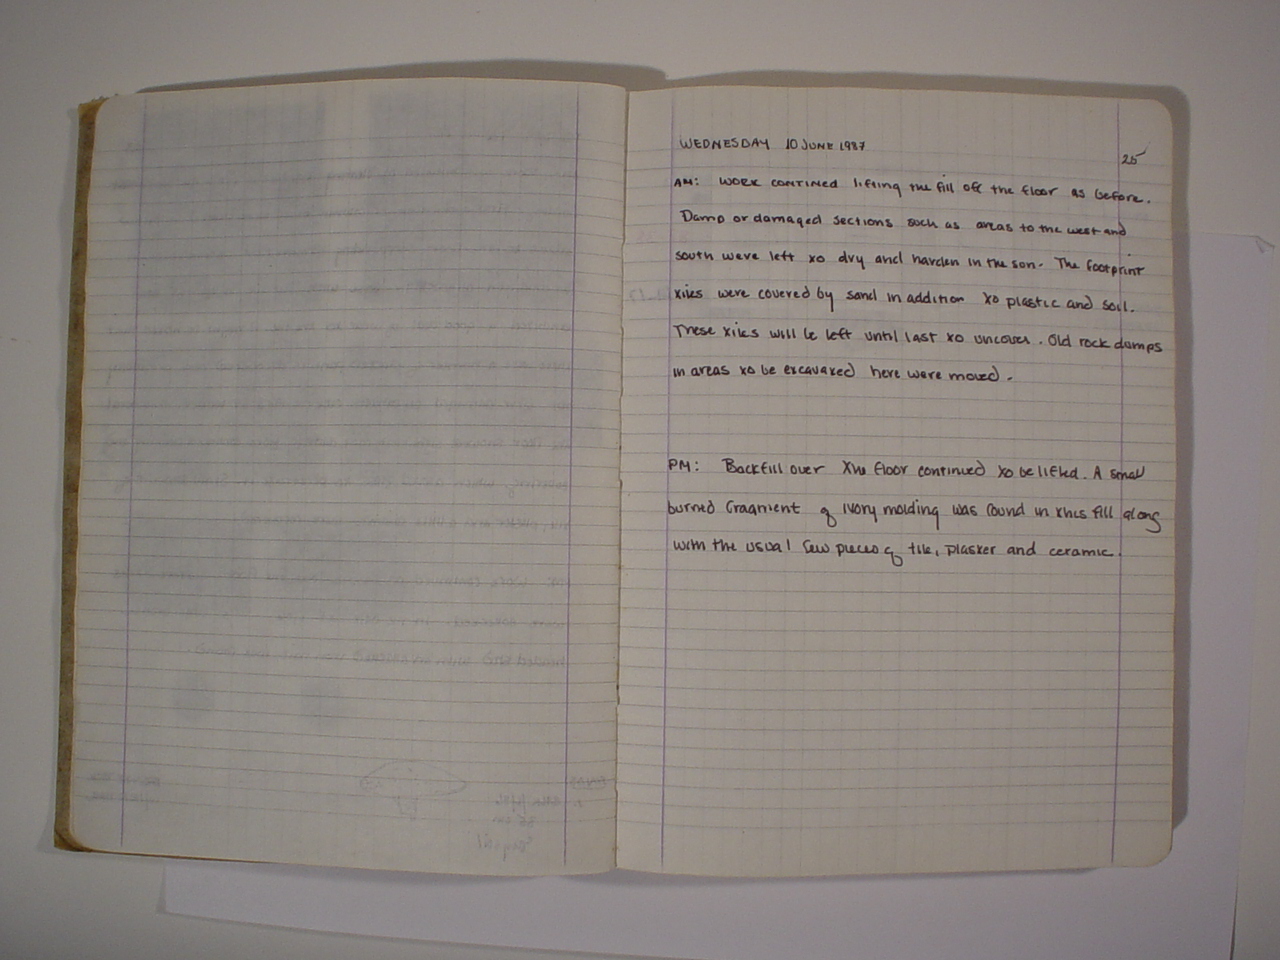 WEDNESDAY 10 JUNE 1987
25
AM: WORK CONTINED lifting the fill off the floor as before.
Damp or damaged sections such as areas to the west and
south were left to dry and harden in the son. The footprint
tiles were covered by sand in addition to plastic and soil.
These tiles will be left until last to uncover. Old rock dumps
in areas to be excavated here were moved.
PM: Backfill over the floor continued to be lifted. A small
burned fragment of ivory molding was found in this fill along
with the usual few pieces of tile, plaster and ceramic.